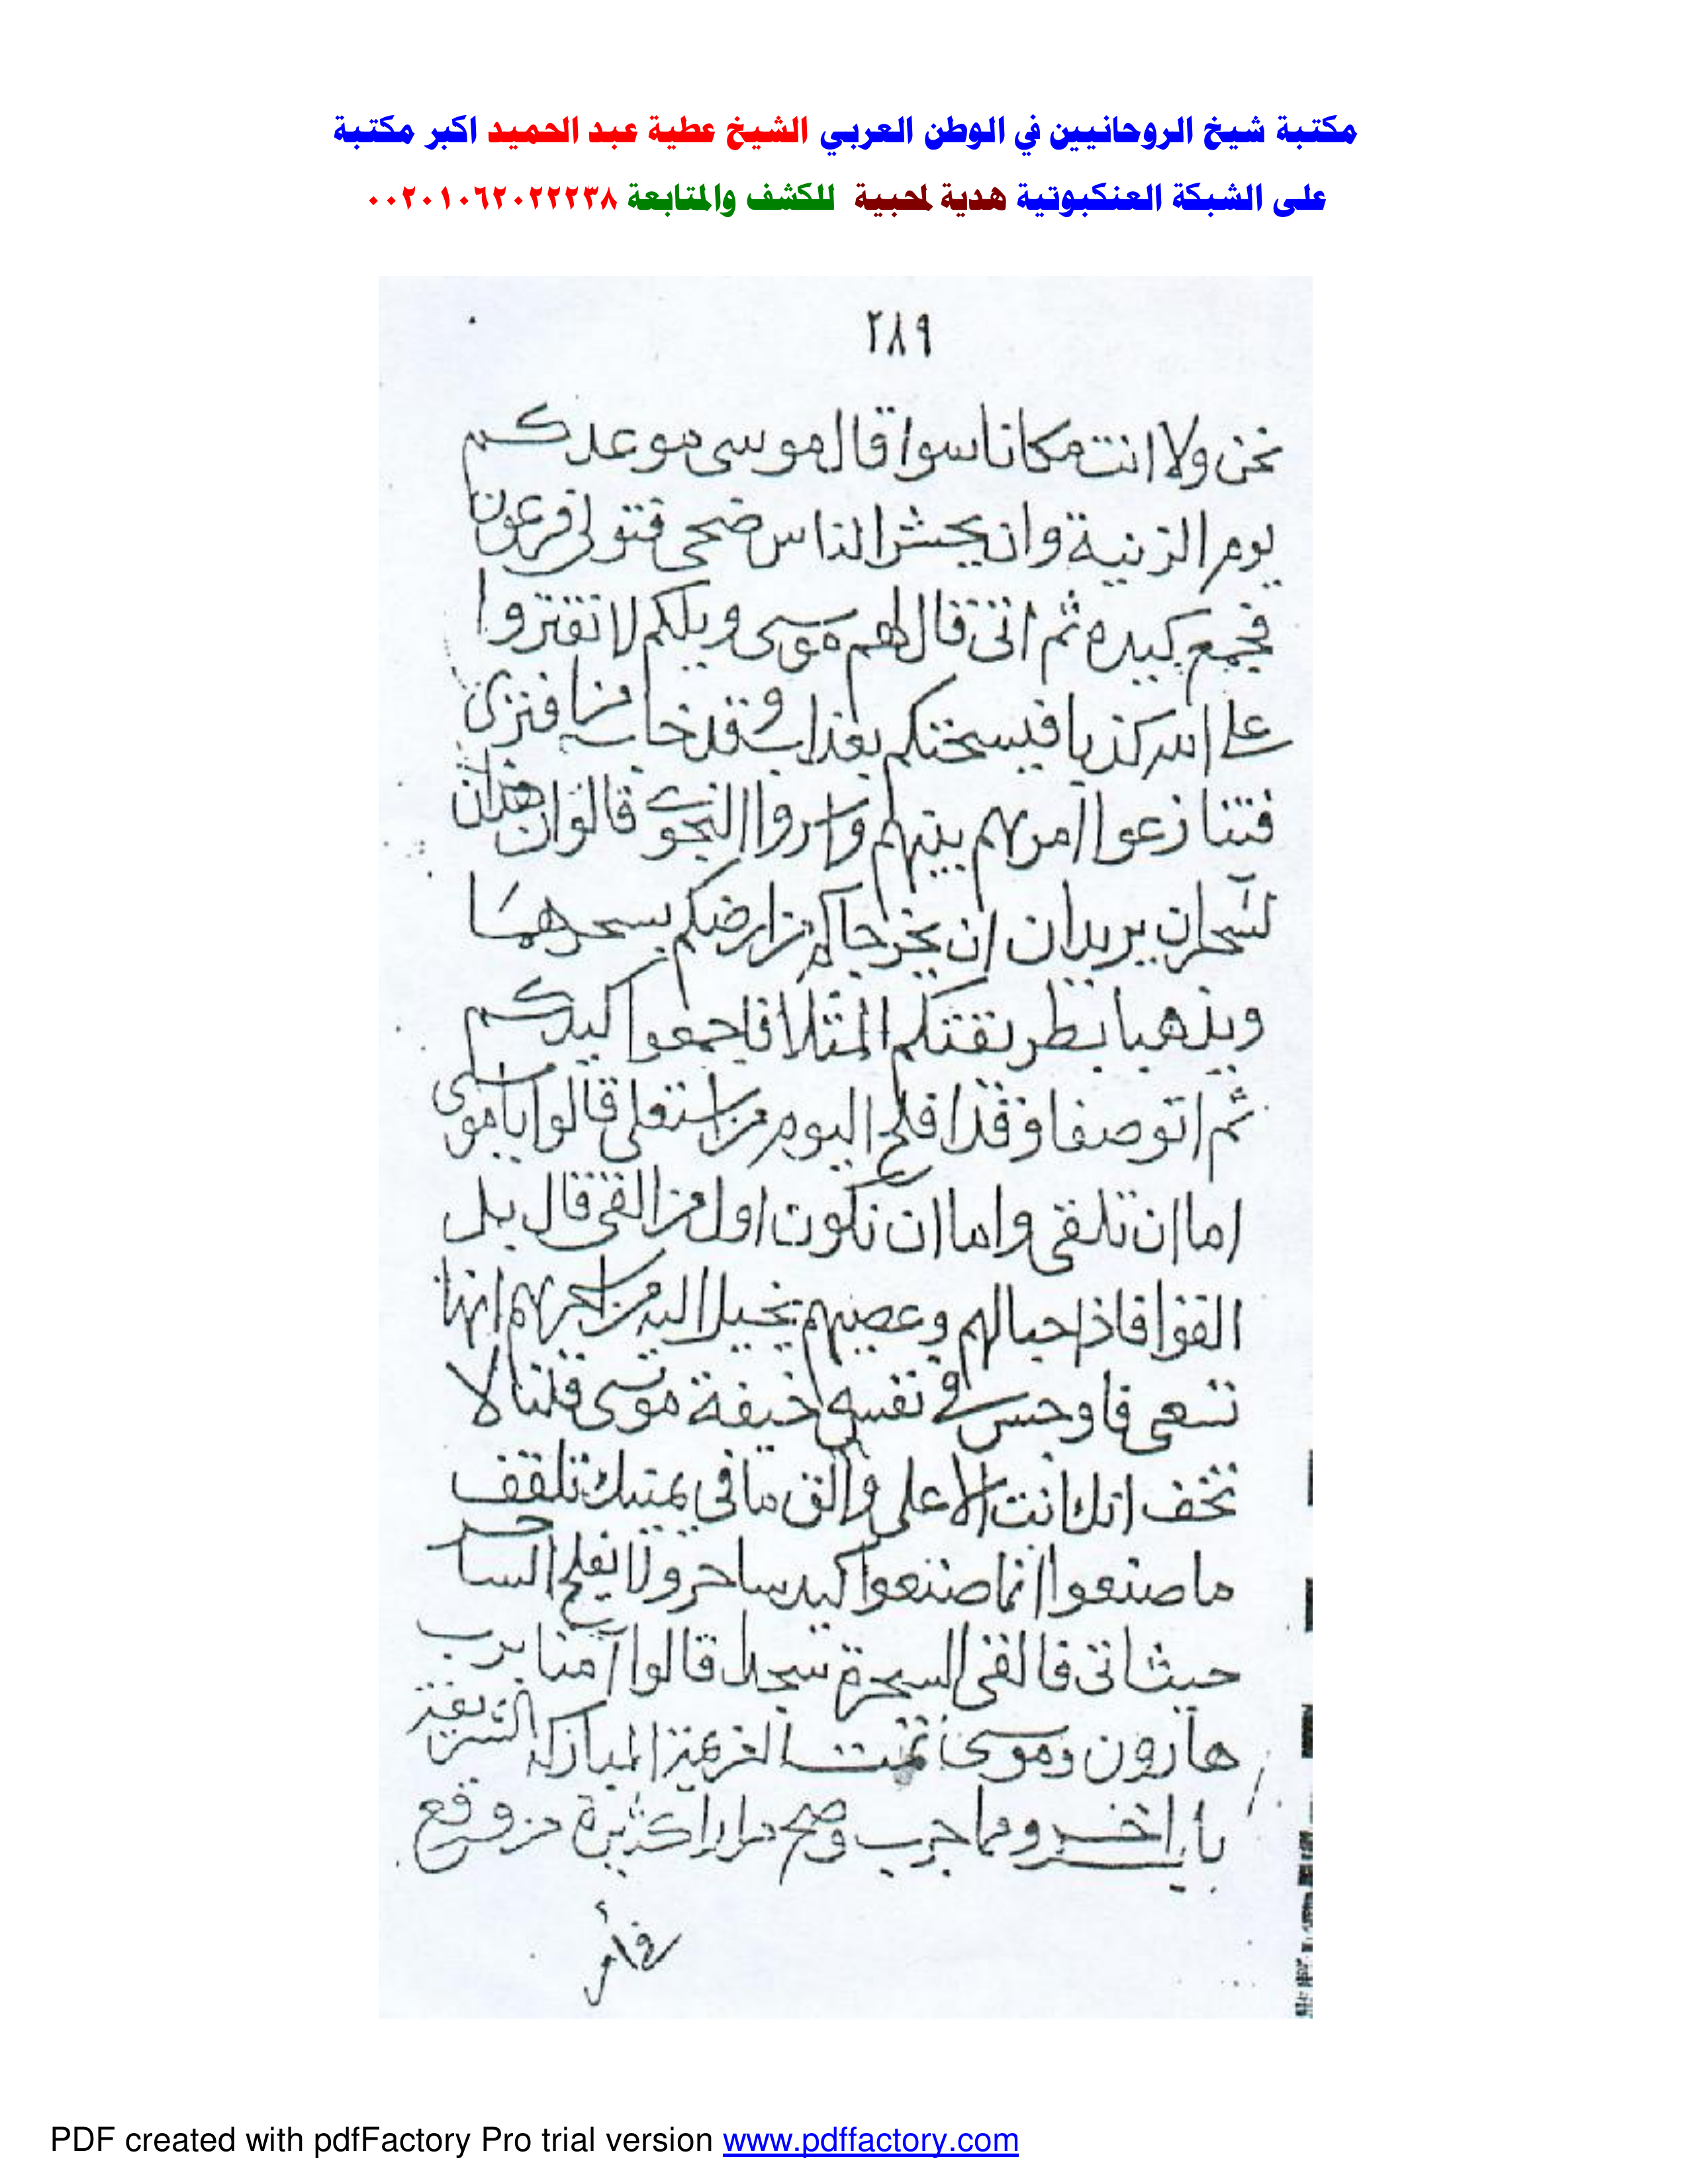 مكتبة شيخ الروحانيين في الوطن العربي الشيخ عطية عبد الحميد اكبر مكتبة
على الشبكة العنكبوتية هدية لمحبية للكشف والمتابعة ٠٠٢٠١٠٦٢٠٢٢٢٣٨
٢٨٩
نحن ولا انت مكانا سوا قال موسى موعدكم
يوم الزينية وان يحشر الناس ضحى فتولى فرعون
فجمع كيده ثم اتى قال لهم موسى ويلكم لا تفتروا
على الله كذبا فيسحتكم بعذاب وقد خاب من افترى
فتنازعوا امرهم بينهم واسروا النجوى قالوا ان هذان
لسحران يريدان ان يخرجاكم من ارضكم بسحرهما
ويذهبا بطريقتكم المثلا فاجمعوا كيدكم
ثم اتو صفا وقد افلح اليوم من استعلى قالوا ياموسى
اما ان تلقى واما ان نكون اول من القى قال بل
القوا فاذا حبالهم وعصيهم يخيل اليه من سحرهم انها
تسعى فاوجس في نفسه خيفة موسى قلنا لا
تخف انك انت الاعلى والق ما في يمينك تلقف
ما صنعوا انما صنعوا كيد ساحر ولا يفلح الساحر
حيث اتى فالقى السحرة سجدا قالوا آمنا برب
هارون وموسى تمت العزيمة المباركة الشريفة
باب اخر ومما جرب وصح مرارا كثيرة من وقع